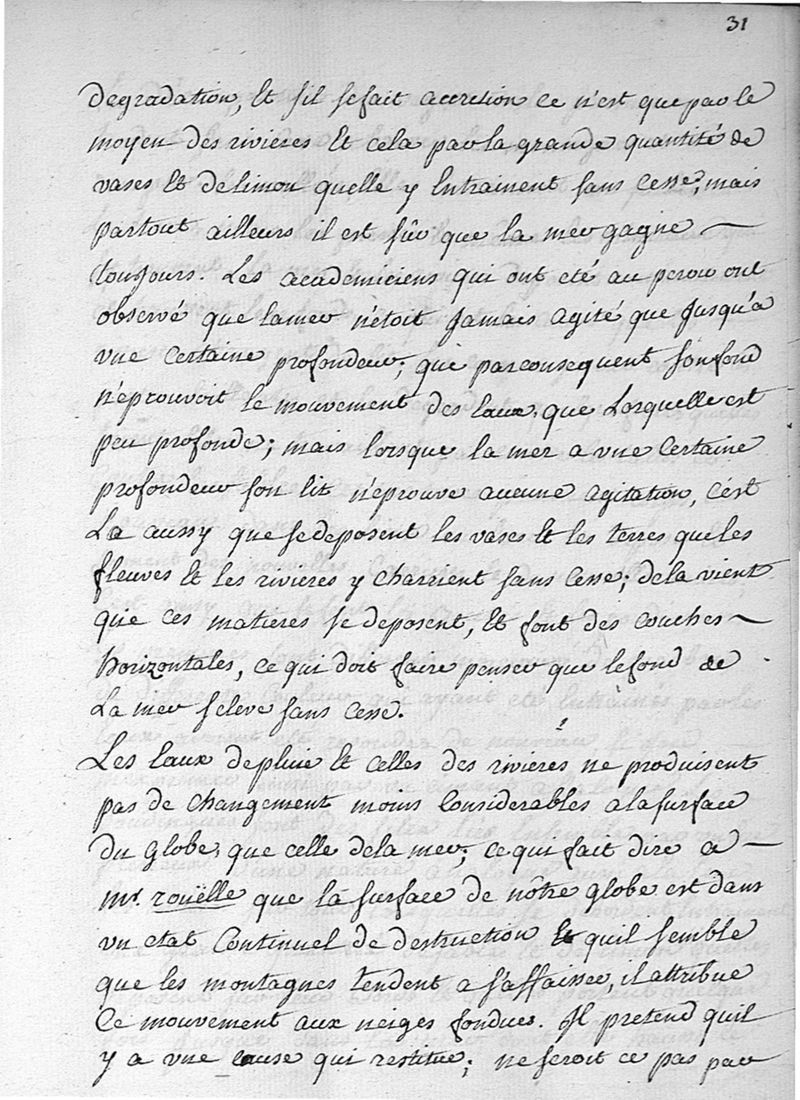 31
degradation, et s'il se fait accretion ce n'est que par le
moyen des rivieres et cela par la grande quantité de
vases et de limon quelle y entrainent sans cesse, mais
partout ailleurs il est sûr que la mer gagne
toujours. Les academiciens qui ont eté au perou ont
observé que la mer n'étoit jamais agité que jusqu'a
vne certaine profondeur; que par consequent son fond
n'eprouvoit le mouvement des eaux, que lorsquelle est
peu profonde; mais lorsque la mer a vne certaine
profondeur son lit n'eprouve aucune agitation, c'est
La aussy que se deposent les vases et les terres que les
fleuves et les rivieres y charrient sans cesse; de la vient
que ces matieres se deposent, et font des couches
horizontales, ce qui doit faire penser que le fond de
La mer s'eleve sans cesse.
Les eaux de pluie et celles des rivieres ne produisent
pas de changement moins considerables a la surface
du globe, que celle de la mer; ce qui fait dire a
Mr. rouëlle que la surface de nôtre globe est dans
vn etat continuel de destruction et quil semble
que les montagnes tendent a s'affaisser, il attribue
ce mouvement aux neiges fondues. Il pretend quil
y a vne cause qui restitue; ne seroit ce pas par